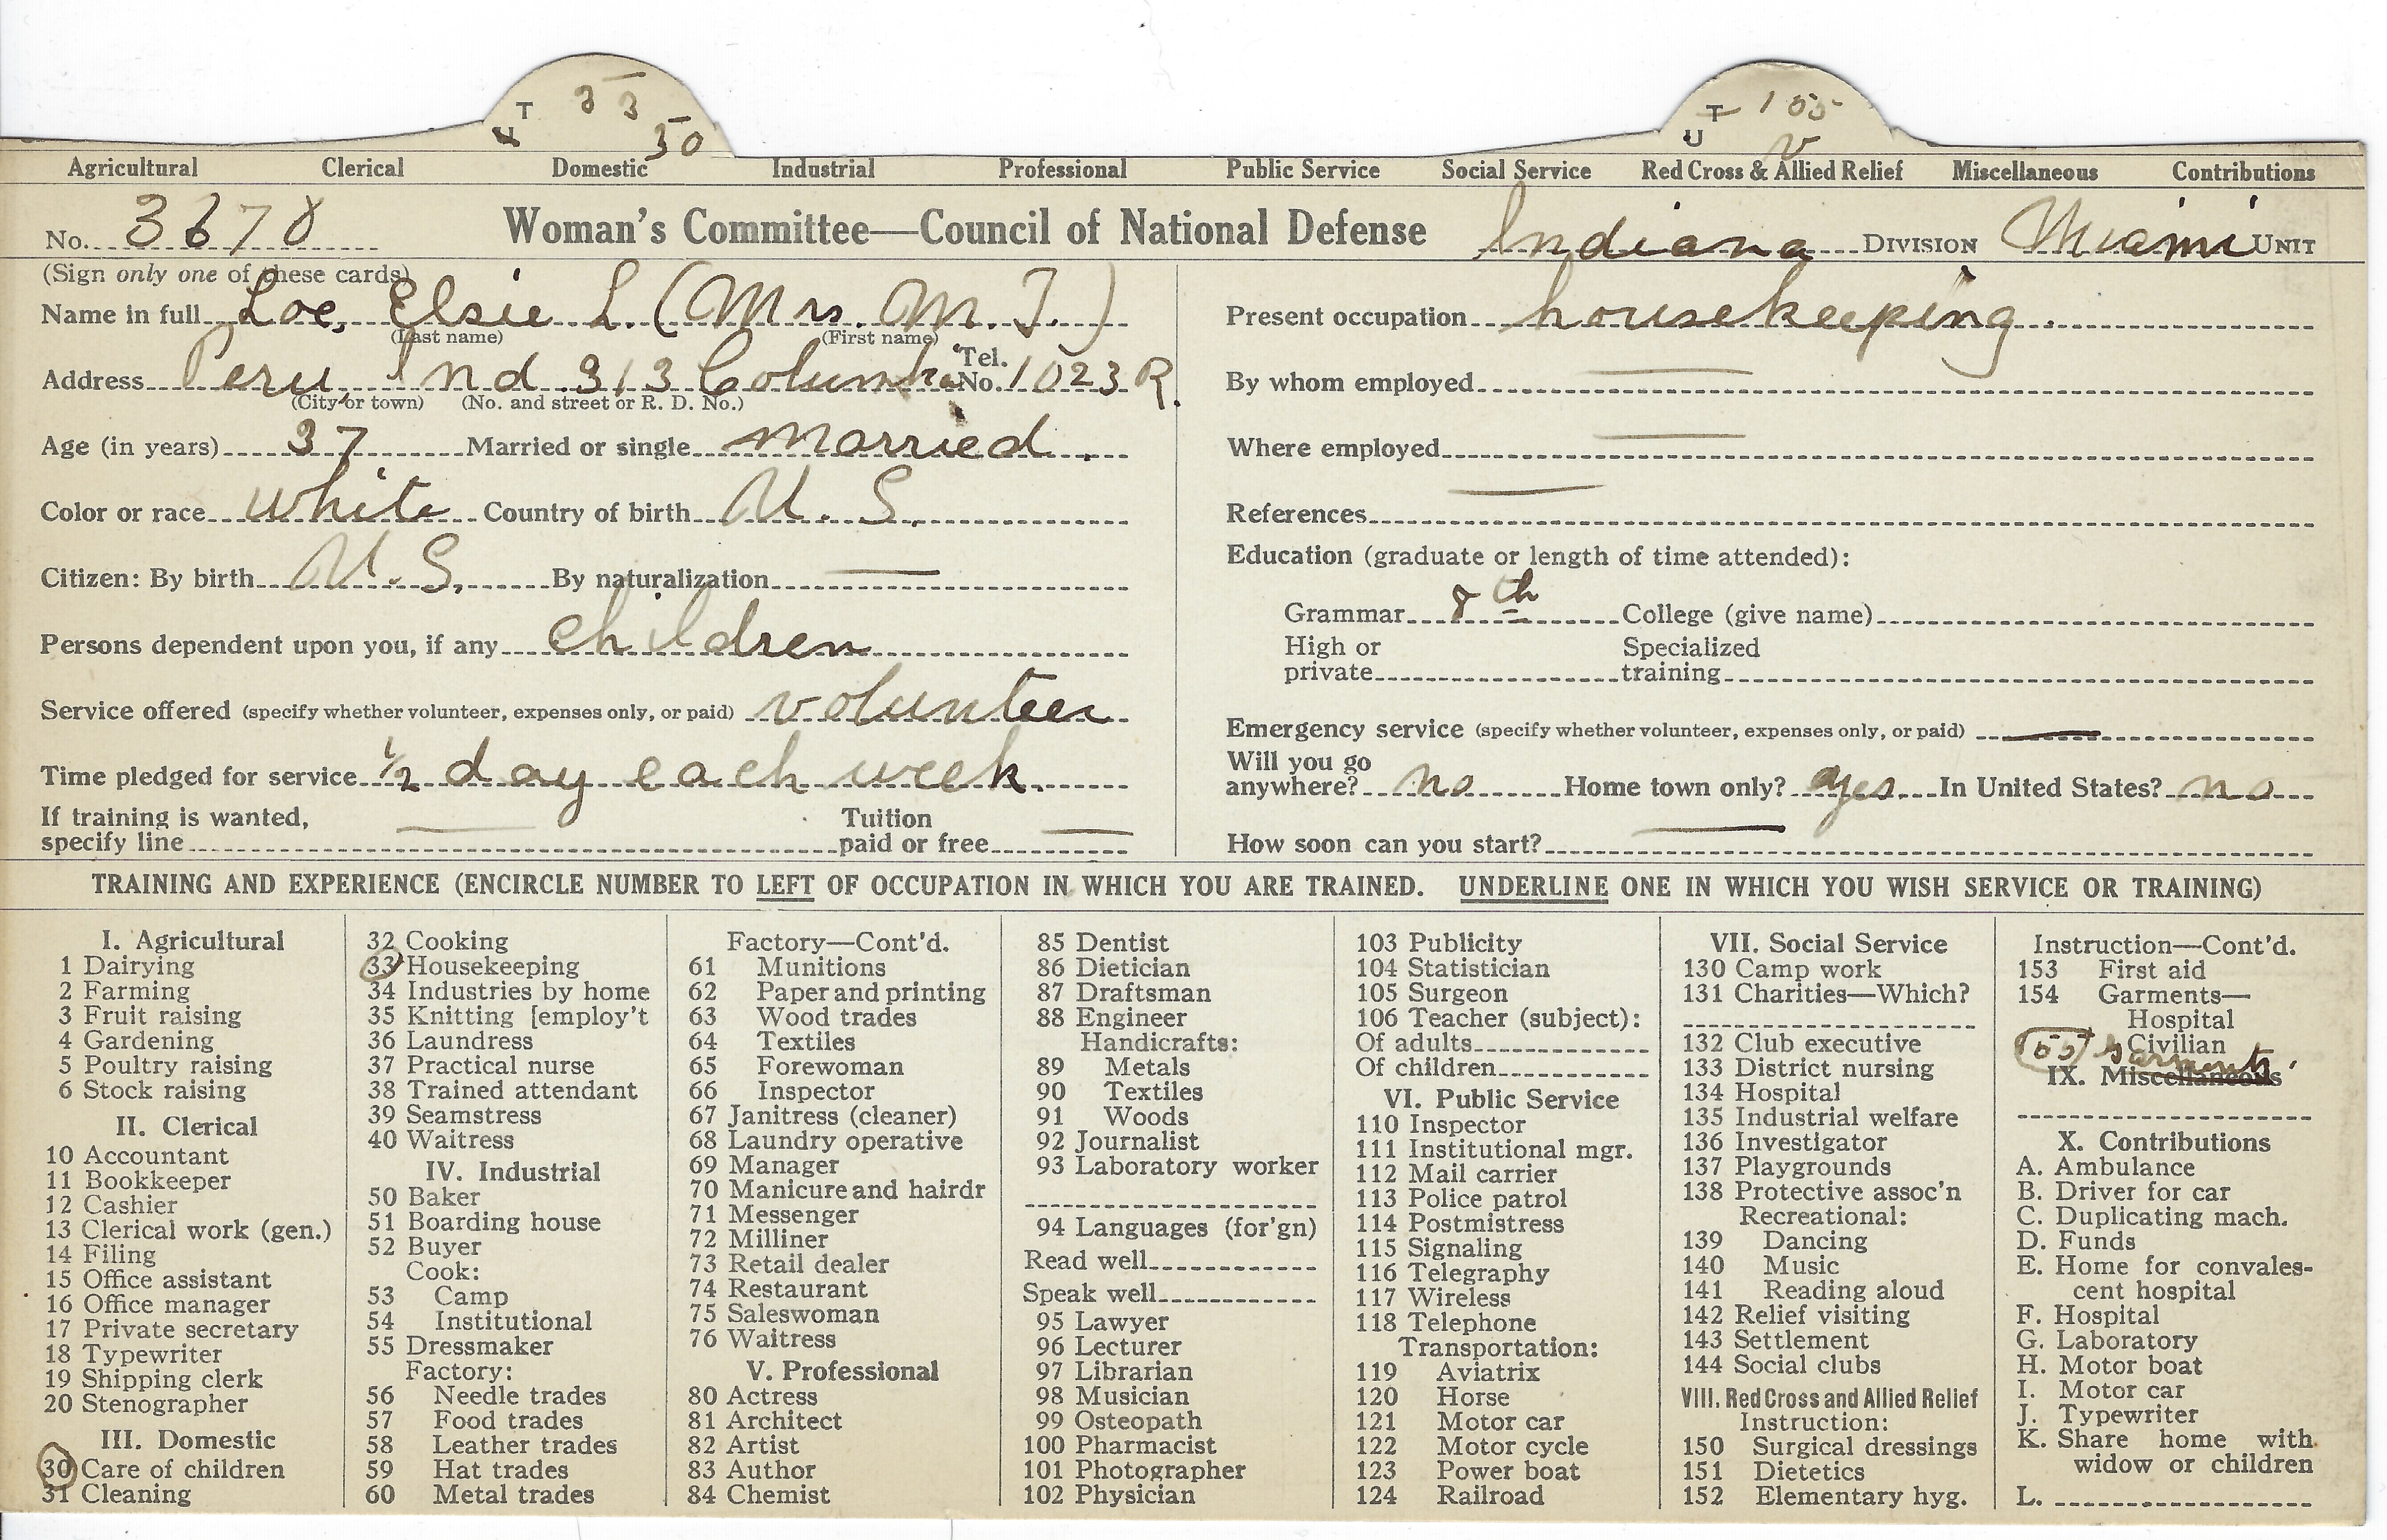 T 33 T 155
U 30 U V
Agricultural Clerical Domestic Industrial Professional Public Service Social Service Red Cross & Allied Relief Miscellaneous Contributions
No. 3678 Woman's Committee—Council of National Defense Indiana DIVISION Miami UNIT
(Sign only one of these cards)
Name in full Loe, Elsie L. (Mrs. M. J.)
(Last name) (First name)
Address Peru, Ind 313 Columbia Tel. No. 1023 R.
(City or town) (No. and street or R. D. No.)
Age (in years) 37 Married or single married.
Color or race white Country of birth U. S.
Citizen: By birth U. S. By naturalization —
Persons dependent upon you, if any children
Service offered (specify whether volunteer, expenses only, or paid) volunteer
Time pledged for service 1/2 day each week.
If training is wanted,
specify line — Tuition paid or free —
Present occupation housekeeping.
By whom employed —
Where employed —
References —
Education (graduate or length of time attended):
Grammar 8th College (give name)
High or private Specialized training
Emergency service (specify whether volunteer, expenses only, or paid) —
Will you go anywhere? no Home town only? yes In United States? no
How soon can you start? —
TRAINING AND EXPERIENCE (ENCIRCLE NUMBER TO LEFT OF OCCUPATION IN WHICH YOU ARE TRAINED. UNDERLINE ONE IN WHICH YOU WISH SERVICE OR TRAINING)
I. Agricultural
1 Dairying
2 Farming
3 Fruit raising
4 Gardening
5 Poultry raising
6 Stock raising
II. Clerical
10 Accountant
11 Bookkeeper
12 Cashier
13 Clerical work (gen.)
14 Filing
15 Office assistant
16 Office manager
17 Private secretary
18 Typewriter
19 Shipping clerk
20 Stenographer
III. Domestic
30 Care of children
31 Cleaning
32 Cooking
33 Housekeeping
34 Industries by home
35 Knitting [employ't
36 Laundress
37 Practical nurse
38 Trained attendant
39 Seamstress
40 Waitress
IV. Industrial
50 Baker
51 Boarding house
52 Buyer
Cook:
53 Camp
54 Institutional
55 Dressmaker
Factory:
56 Needle trades
57 Food trades
58 Leather trades
59 Hat trades
60 Metal trades
Factory—Cont'd.
61 Munitions
62 Paper and printing
63 Wood trades
64 Textiles
65 Forewoman
66 Inspector
67 Janitress (cleaner)
68 Laundry operative
69 Manager
70 Manicure and hairdr
71 Messenger
72 Milliner
73 Retail dealer
74 Restaurant
75 Saleswoman
76 Waitress
V. Professional
80 Actress
81 Architect
82 Artist
83 Author
84 Chemist
85 Dentist
86 Dietician
87 Draftsman
88 Engineer
Handicrafts:
89 Metals
90 Textiles
91 Woods
92 Journalist
93 Laboratory worker
94 Languages (for'gn)
Read well
Speak well
95 Lawyer
96 Lecturer
97 Librarian
98 Musician
99 Osteopath
100 Pharmacist
101 Photographer
102 Physician
103 Publicity
104 Statistician
105 Surgeon
106 Teacher (subject):
Of adults
Of children
VI. Public Service
110 Inspector
111 Institutional mgr.
112 Mail carrier
113 Police patrol
114 Postmistress
115 Signaling
116 Telegraphy
117 Wireless
118 Telephone
Transportation:
119 Aviatrix
120 Horse
121 Motor car
122 Motor cycle
123 Power boat
124 Railroad
VII. Social Service
130 Camp work
131 Charities—Which?
132 Club executive
133 District nursing
134 Hospital
135 Industrial welfare
136 Investigator
137 Playgrounds
138 Protective assoc'n
Recreational:
139 Dancing
140 Music
141 Reading aloud
142 Relief visiting
143 Settlement
144 Social clubs
VIII. Red Cross and Allied Relief
Instruction:
150 Surgical dressings
151 Dietetics
152 Elementary hyg.
Instruction—Cont'd.
153 First aid
154 Garments—
Hospital
Civilian
155 garments
IX. Miscellaneous
X. Contributions
A. Ambulance
B. Driver for car
C. Duplicating mach.
D. Funds
E. Home for convales-
cent hospital
F. Hospital
G. Laboratory
H. Motor boat
I. Motor car
J. Typewriter
K. Share home with
widow or children
L.